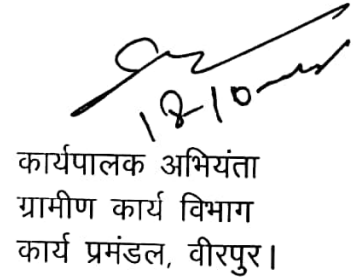 18-10
कार्यपालक अभियंता
ग्रामीण कार्य विभाग
कार्य प्रमंडल, वीरपुर।